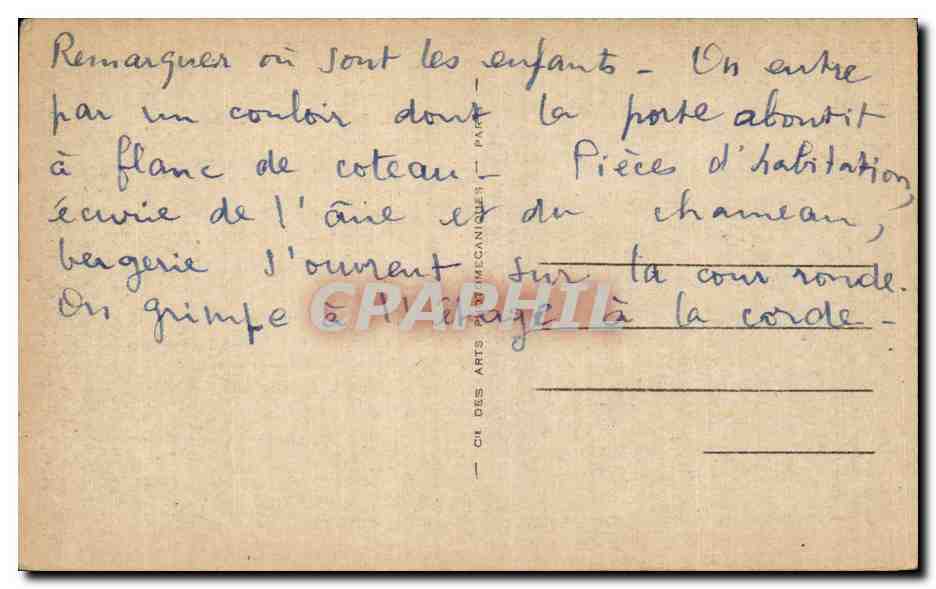 Remarquer où sont les enfants - On entre
par un couloir dont la porte aboutit
à flanc de coteau - Pièces d'habitation,
écurie de l'âne et du chameau,
bergerie s'ouvrent sur la cour ronde.
On grimpe à l'étage à la corde -
— CIE DES ARTS PHOTOMECANIQUES — PARIS —
CPAPHIL